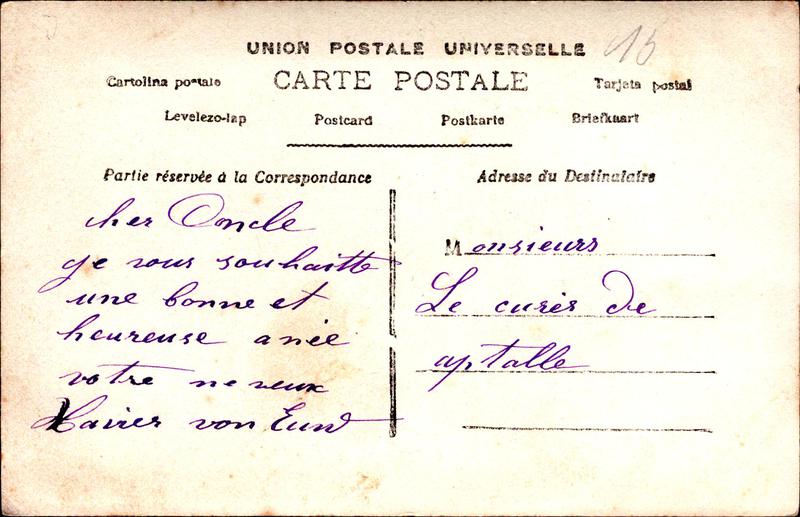 UNION POSTALE UNIVERSELLE
15
CARTE POSTALE
Cartolina postale
Tarjeta postal
Levelezo-lap
Postcard
Postkarte
Briefkaart
Partie réservée à la Correspondance
cher Oncle
ge vous souhaitte
une bonne et
heureuse anée
votre neveux
Xavier von
Adresse du Destinataire
Monsieurs
Le curés de
aptalle